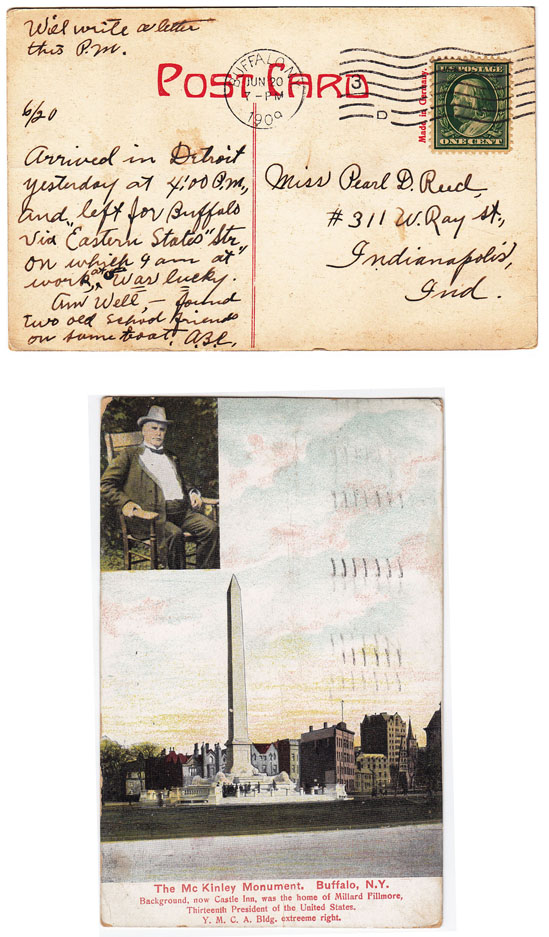 We'l write a letter
this P.M.
POST CARD
BUFFALO, N.Y.
JUN 20
7 - PM
1909
3
D
Made in Germany
U.S. POSTAGE
ONE CENT
6/20
Arrived in Detroit
yesterday at 4:00 P.M.,
and left for Buffalo
via "Eastern States" Str.
on which I am at
work, Was lucky.
Am Well, — found
two old school friends
on same boat. A.B.C.
Miss Pearl D. Reed,
#311 W. Ray St.,
Indianapolis,
Ind.
The Mc Kinley Monument. Buffalo, N.Y.
Background, now Castle Inn, was the home of Millard Fillmore,
Thirteenth President of the United States.
Y. M. C. A. Bldg. extreeme right.